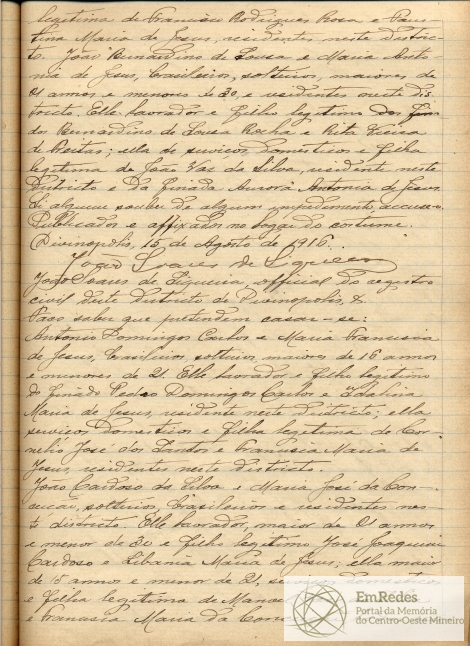 legitima de Francisco Rodrigues Rosa e Faus-
tina Maria de Jesus, residentes neste Distric-
to. João Bernardino de Sousa e Maria Anto-
nia de Jesus, brasileiros, solteiros, maiores de
21 annos e menores de 30 e residentes neste dis-
tricto. Elle lavrador e filho legitimo dos fina-
dos Bernardino de Sousa Rocha e Rita Vieira
de Freitas; ella de serviços domesticos e filha
legitima de João Vaz da Silva, residente neste
Districto e da finada Aurora Antonia de Jesus.
Si alguem souber de algum impedimento, accuse-o.
Publicados e affixados no logar do costume.
Divinopolis, 15 de Agosto de 1916.
João Soares de Siqueira
João Soares de Siqueira, official do registro
civil deste Districto de Divinopolis, &
Faço saber que pretendem casar-se:
Antonio Domingos Carlos e Maria Francisca
de Jesus, brasileiros, solteiros, maiores de 16 annos
e menores de 21. Elle lavrador e filho legitimo
do finado Pedro Domingos Carlos e Idalina
Maria de Jesus, residente neste districto; ella
serviços domesticos e filha legitima de Cor-
nelio José dos Santos e Francisca Maria de
Jesus residentes neste districto.
João Cardoso da Silva e Maria José da Con-
ceicao, solteiros, brasileiros e residentes nes-
te districto. Elle lavrador, maior de 21 annos
e menor de 30 e filho legitimo José Joaquim
Cardoso e Libania Maria de Jesus; ella maior
de annos e menor de 21, serviços domesticos
e filha legitima de Manoel
e Francisca Maria da Conc
EmRedes
Portal da Memória
do Centro-Oeste Mineiro